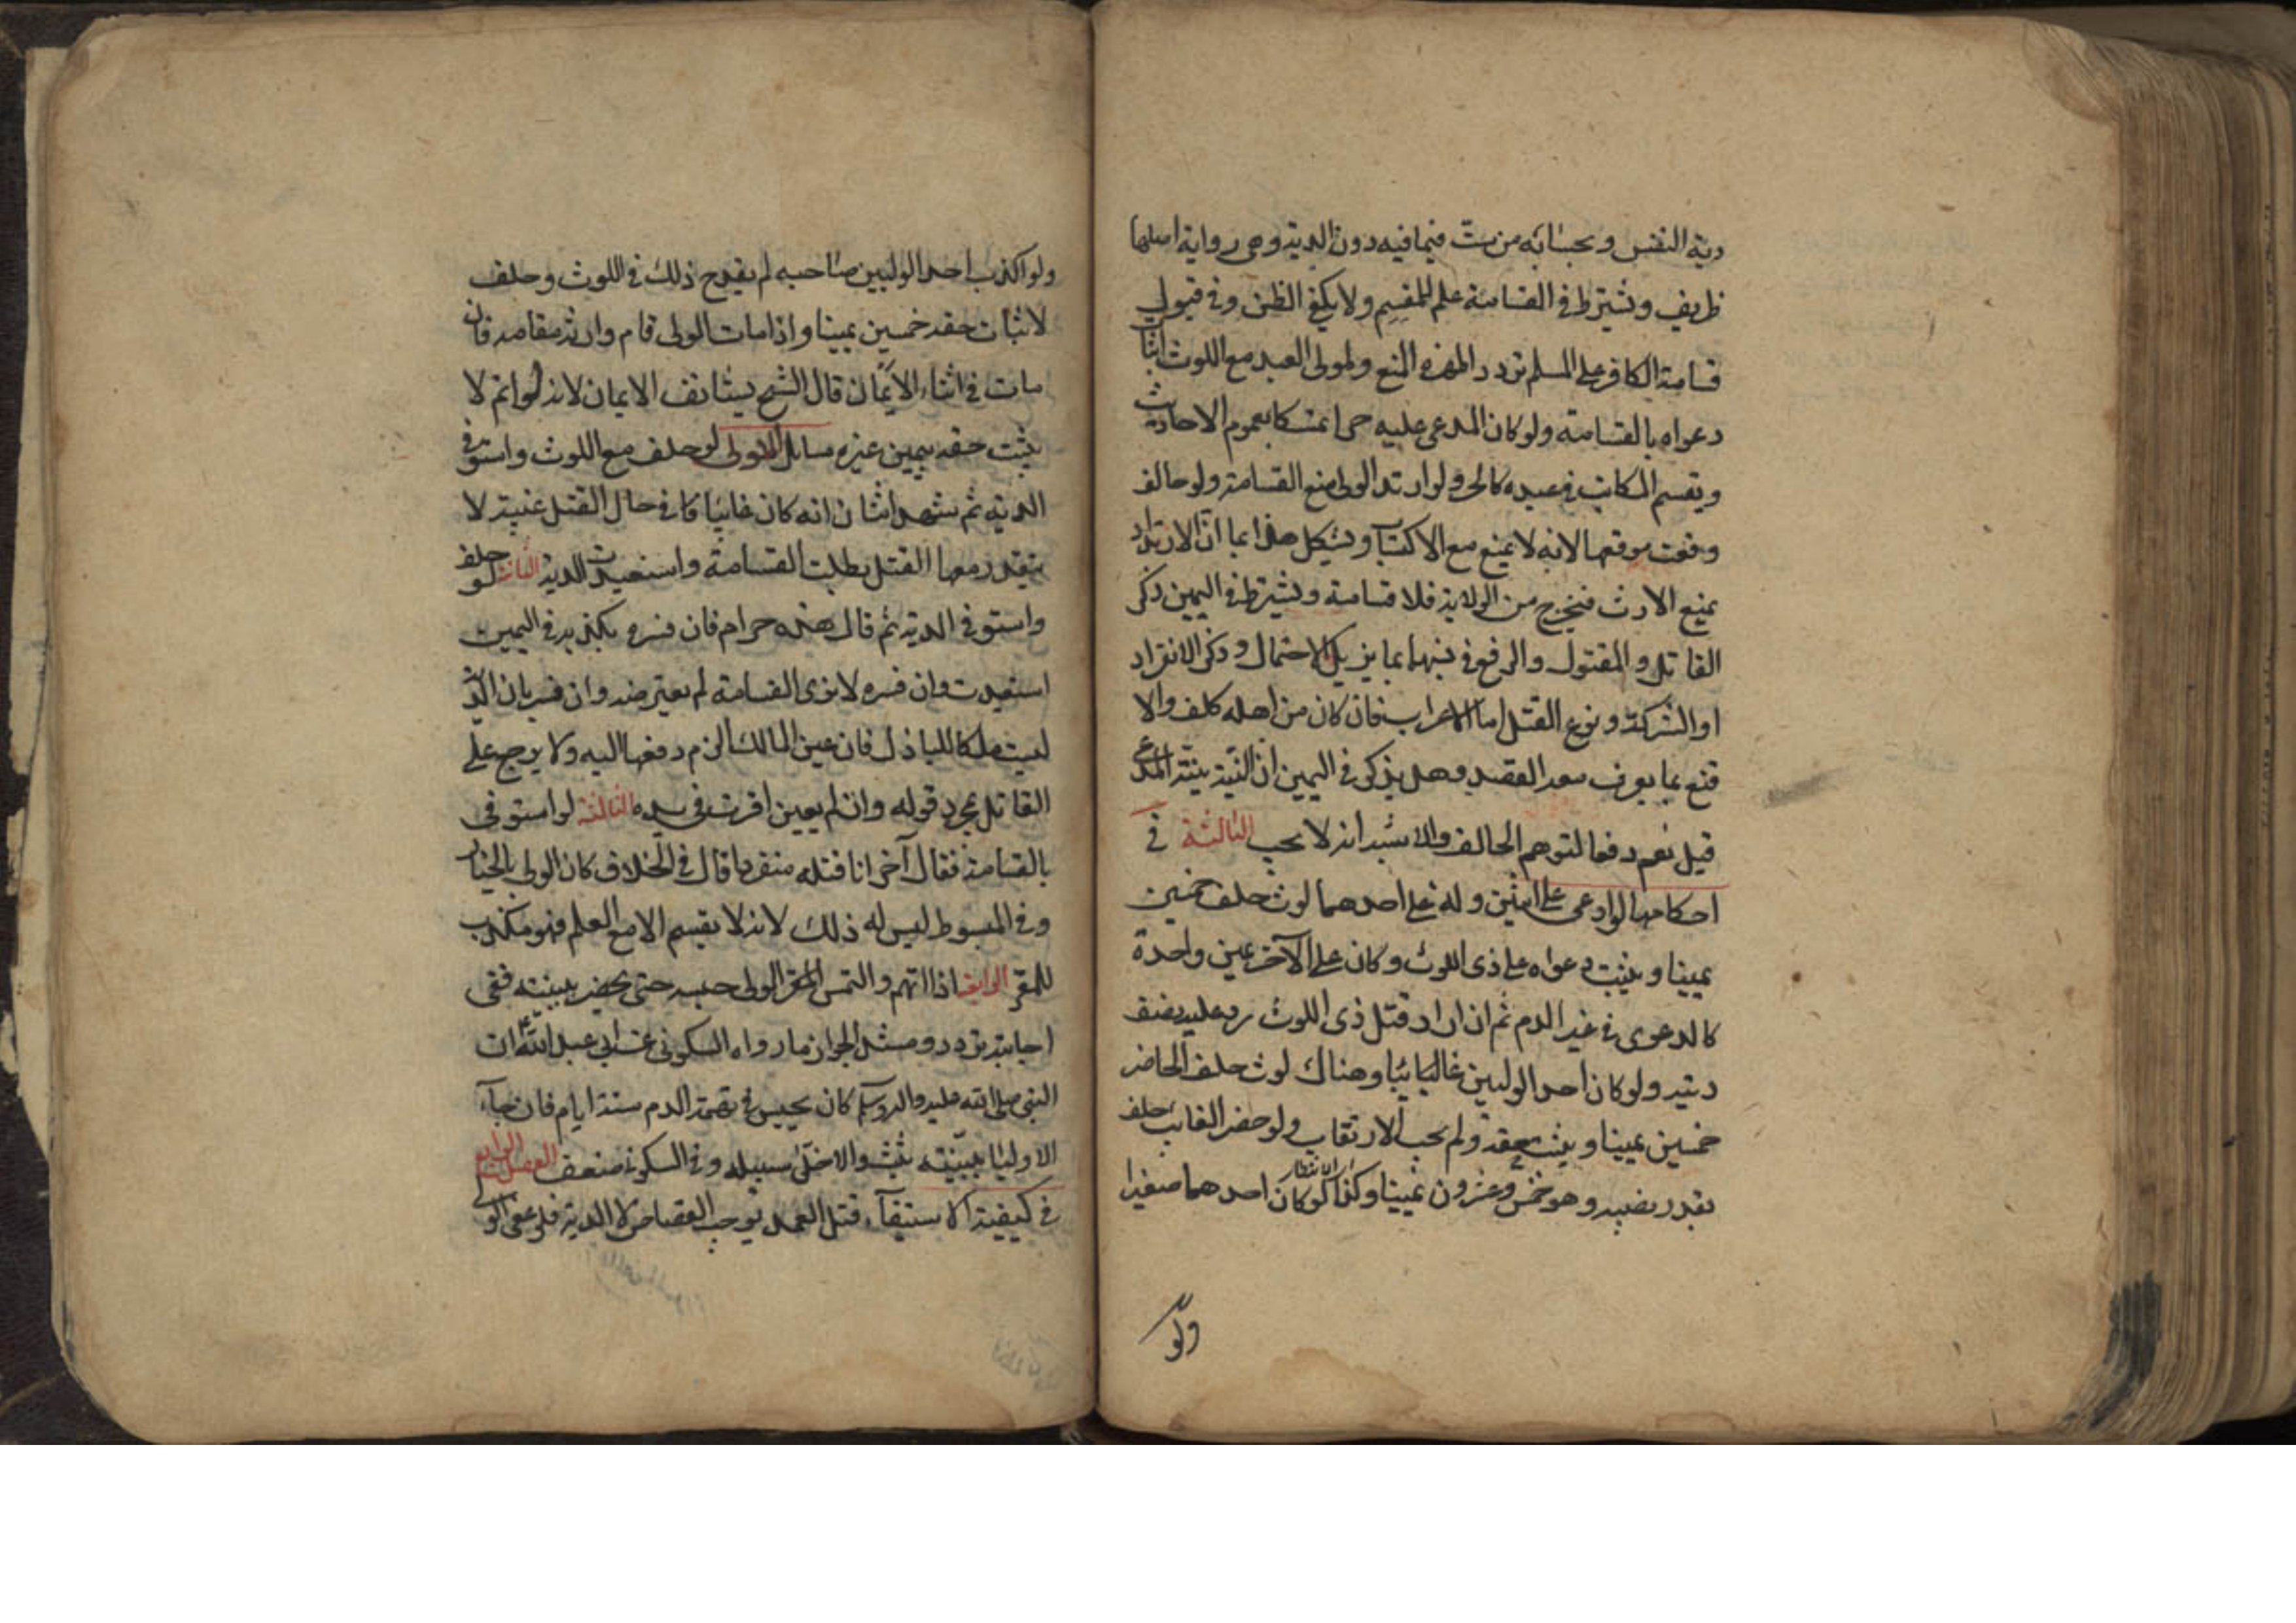 دية النفس وبحسابه من ست فيما فيه دون الدية وهي رواية اصلها
ظريف ويشترط في القسامة علم المقسم ولا يكفي الظن وفي قبول
قسامة الكافر على المسلم تردد اظهره المنع ولمولى العبد مع اللوث اثبات
دعواه بالقسامة ولو كان المدعى عليه حرا تمسكا بعموم الاحاديث
ويقسم المكاتب في عبده كالحر ولو ارتد الولي منع القسامة ولو خالف
وقعت موقعها لانه لا يمنع مع الاكتساب ويشكل هذا بما ان الارتداد
يمنع الارث فيخرج من الولاية فلا قسامة ويشترط في اليمين ذكر
القاتل والمقتول والرفع في نسبهما بما يزيل الاحتمال وذكر الانفراد
او الشركة ونوع القتل اما الاعراب فان كان من اهله كلف والا
قنع بما يعرف معه القصد وهل يذكر في اليمين ان النية نية المدعي
قيل نعم دفعا لتوهم الحالف والاشبه انه لا يجب الثالثة في
احكامها لو ادعى على اثنين وله على احدهما لوث حلف خمسين
يمينا ويثبت دعواه على ذي اللوث وكان على الآخر يمين واحدة
كالدعوى في غير الدم ثم ان اراد قتل ذي اللوث رد عليه نصف
ديته ولو كان احد الوليين غائبا وهناك لوث حلف الحاضر
خمسين يمينا ويثبت حقه ولم يجب الارتقاب ولو حضر الغائب حلف
بقدر نصيبه وهو خمس وعشرون يمينا وكذا لو كان احدهما صغيرا
ولو
ولو اكذب احد الوليين صاحبه لم يقدح ذلك في اللوث وحلف
لاثبات حقه خمسين يمينا واذا مات الولي قام وارثه مقامه فان
مات في اثناء الايمان قال الشيخ يستأنف الايمان لانه لو اتم لا
يثبت حقه بيمين غيره مسائل الاولى لو حلف مع اللوث واستوفى
الدية ثم شهد اثنان انه كان غائبا في حال القتل غيبة لا
يتقدر معها القتل بطلت القسامة واستعيدت الدية الثانية لو حلف
واستوفى الدية ثم قال هذه حرام فان فسره بكذبه في اليمين
استعيدت وان فسره لا يرى القسامة لم يعترضه وان فسر بان الدية
ليست ملكا للباذل فان عين المالك الزم دفعها اليه ولا يرجع على
القاتل بمجرد قوله وان لم يعين اقرت في يده الثالثة لو استوفى
بالقسامة فقال آخر انا قتلته منفردا قال في الخلاف كان الولي بالخيار
وفي المبسوط ليس له ذلك لانه لا يقسم الا مع العلم فهو مكذب
للمقر الرابعة اذا اتهم والتمس الولي حبسه حتى يحضر ببينته ففي
اجابته تردد ومستند الجواز ما رواه السكوني عن ابي عبد الله ان
النبي صلى الله عليه وآله وسلم كان يحبس في تهمة الدم ستة ايام فان جاء
الاولياء ببينته يثبت والا خلى سبيله وفي السكوني ضعف الفصل الرابع
في كيفية الاستيفآء قتل العمد يوجب القصاص لا الدية فلو عفى الولي